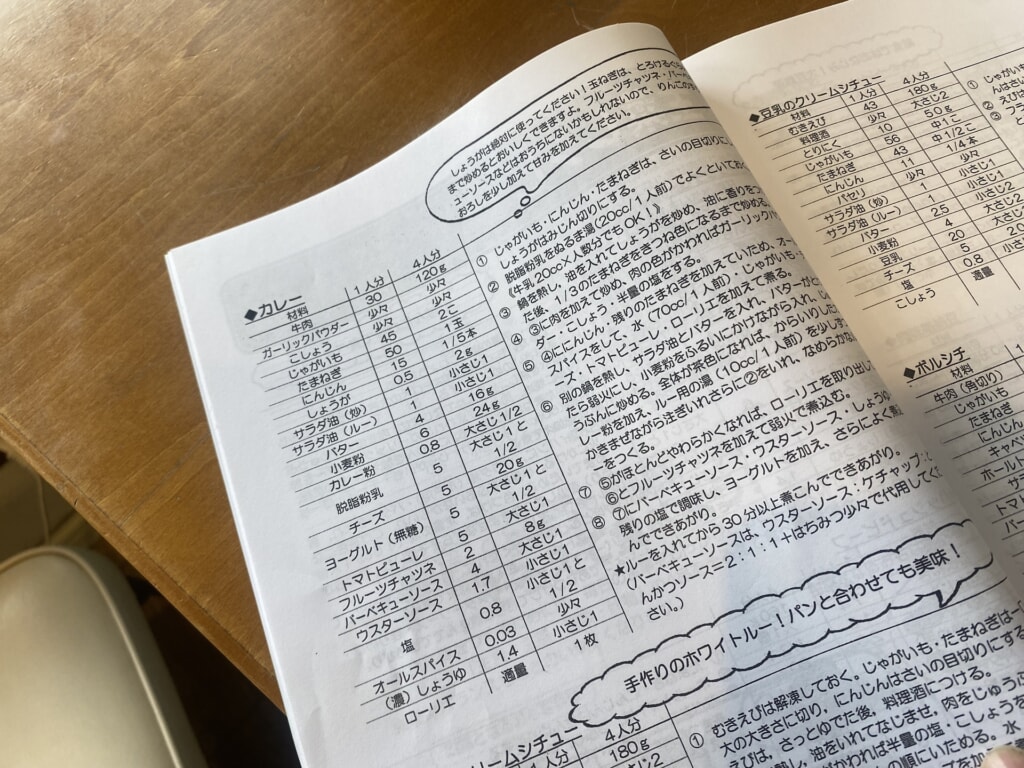 しょうがは絶対に使ってください！玉ねぎは、とろける
まで炒めるとおいしくできますよ。フルーツチャツネ・バー
ューソースなどはおうちにないかもしれないので、りんごの
おろしを少し加えて甘みを加えてください。
◆カレー
材料 1人分 4人分
牛肉 30 120g
ガーリックパウダー 少々 少々
こしょう 少々 少々
じゃがいも 45 2こ
たまねぎ 50 1玉
にんじん 15 1/5本
しょうが 0.5 2g
サラダ油（炒） 1 小さじ1
サラダ油（ルー） 4 16g
バター 6 24g
小麦粉 大さじ1/2
カレー粉 0.8 大さじ1と1/2
脱脂粉乳 5
チーズ 5 20g
ヨーグルト（無糖） 5 大さじ1と1/2
トマトピューレ 5 大さじ1
フルーツチャツネ 2 8g
バーベキューソース 4 大さじ1
ウスターソース 1.7 小さじ1と1/2
塩 0.8
オールスパイス 0.03 少々
（濃）しょうゆ 1.4 小さじ1
ローリエ 適量 1枚
① じゃがいも・にんじん・たまねぎは、さいの目切りにし
しょうがはみじん切りにする。
② 脱脂粉乳をぬるま湯（20cc/1人前）でよくといてお
《牛乳20cc×人数分でもOK！》
③ 鍋を熱し、油を入れてしょうがを炒め、油に香りをつ
た後、1/3のたまねぎをきつね色になるまで炒め
④ ③に肉を加えて炒め、肉の色がかわればガーリックパ
ダー・こしょう、半量の塩をする。
⑤ ④ににんじん・残りのたまねぎを加えていため、オー
スパイスをして、水（70cc/1人前）・じゃがいも・
ーズ・トマトピューレ・ローリエを加えて煮る。
⑥ 別の鍋を熱し、サラダ油とバターを入れ、バターがと
たら弱火にし、小麦粉をふるいにかけながら入れ、
うぶんに炒める。全体が茶色になれば、からいりした
レー粉を加え、ルー用の湯（10cc/1人前）を少し
かきまぜながら注ぎいれさらに②をいれ、なめらかな
ーをつくる。
⑦ ⑤がほとんどやわらかくなれば、ローリエを取り出し
⑥とフルーツチャツネを加えて弱火で煮込む。
⑧ ⑦にバーベキューソース・ウスターソース・しょうゆ
残りの塩で調味し、ヨーグルトを加え、さらによく煮
んでできあがり。
★ルーを入れてから30分以上煮こんでできあがり。
（バーベキューソースは、ウスターソース・ケチャップ・
んかつソース＝2：1：1＋はちみつ少々で代用してく
さい。）
手作りのホワイトルー！パンと合わせても美味！
ームシチュー
1人分 4人分
180g
① むきえびは解凍しておく。じゃがいも・たまねぎは
大の大きさに切り、にんじんはさいの目切りにする
えびは、さっとゆでた後、料理酒につける。
熱し、油をいれてなじませ、肉をじゅう
がかわれば半量の塩・こしょうを
の順にいためる。
◆豆乳のクリームシチュー
材料 1人分 4人分
むきえび 43 180g
料理酒 少々 大さじ2
とりにく 10 50g
じゃがいも 56 中1こ
たまねぎ 43 中1/2こ
にんじん 11 1/4本
パセリ 少々 少々
サラダ油（炒） 1 小さじ1
サラダ油（ルー） 1 小さじ1
バター 2.5
小麦粉 4 大さじ2
豆乳 20
チーズ 5
塩 0.8
こしょう 適量
① じゃがいも
んはさい
② えび
③
◆ボルシチ
材料
牛肉（角切り）
じゃがいも
たまねぎ
にんじん
キャベ
ホール
サ
トマ
バタ